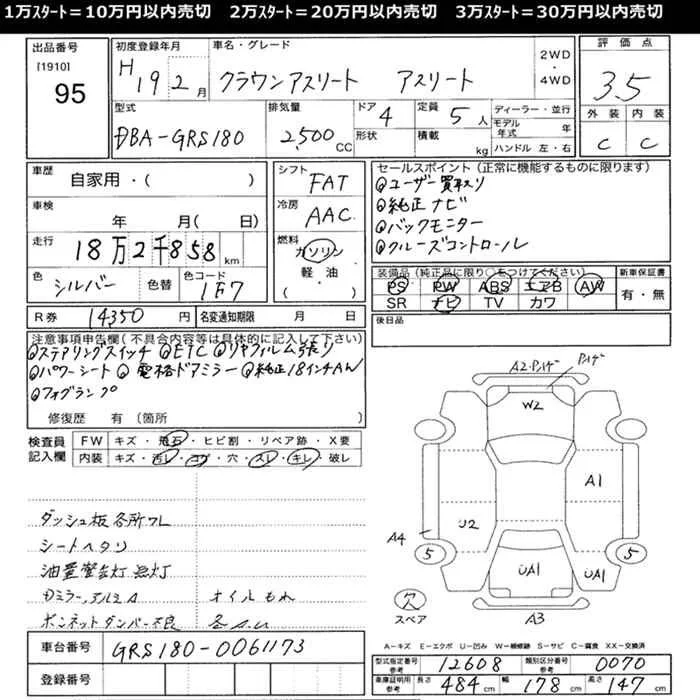 1万ｽﾀｰﾄ＝10万円以内売切　2万ｽﾀｰﾄ＝20万円以内売切　3万ｽﾀｰﾄ＝30万円以内売切
出品番号 [1910] 95
初度登録年月 H19 2月
車名・グレード クラウンアスリート アスリート
2WD ・ 4WD
評価点 3.5
外装 C 内装 C
型式 DBA-GRS180
排気量 2,500 CC
ドア 4 形状
定員 5人 積載 kg
ディーラー・並行
モデル年式 年
ハンドル 左・右
車歴 自家用・( )
車検 年 月( 日)
走行 18万2千858km
色 シルバー 色替 色コード 1F7
シフト FAT
冷房 AAC
燃料 ガソリン 軽油
セールスポイント (正常に機能するものに限ります)
◎ユーザー買取り
◎純正ナビ
◎バックモニター
◎クルーズコントロール
装備品 (純正品に限り○をつけてください)
PS PW ABS エアB AW
SR ナビ TV カワ
新車保証書 有・無
後日品
R券 14350円 名変通知期限 月 日
注意事項申告欄 (不具合内容等は具体的に記入して下さい)
◎ステアリングスイッチ ◎ETC ◎リヤフィルム張り
◎パワーシート ◎電格ドアミラー ◎純正18インチAW
◎フォグランプ
修復歴 有 (箇所 )
検査員記入欄
FW キズ・飛石・ヒビ割・リペア跡・X要
内装 キズ・汚レ・コゲ・穴・スレ・キレ・破レ
ダッシュ板各所ワレ
シートヘタリ
油量警告灯点灯
オイルもれ
ボンネットダンパー不良
A2・Pハゲ Pハゲ
W2
A1
A4 U2
5 5
UA1 UA1
欠 スペア A3
A-キズ E-エクボ U-凹み W-補修跡 S-サビ C-腐食 XX-交換済
車台番号 GRS180-0061173
登録番号
型式指定番号 参考 12608 類別区分番号 参考 0070
車庫証明用 参考 長さ 484cm 幅 178cm 高さ 147cm